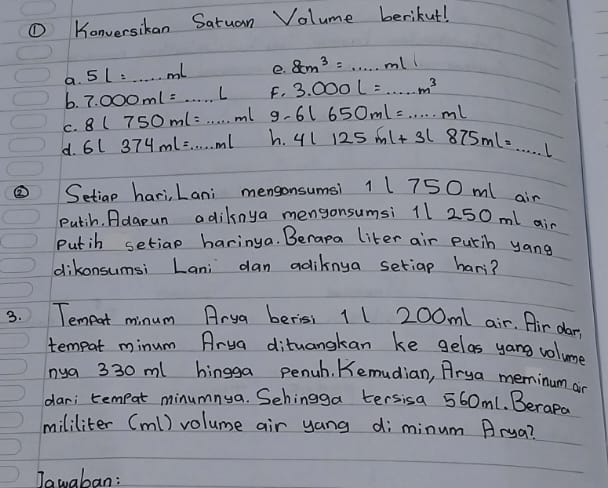 ① Konversikan Satuan Volume berikut!
a. 5 l = ...... ml e. 8 m³ = ..... ml
b. 7.000 ml = ..... l f. 3.000 l = ..... m³
c. 8 l 750 ml = ..... ml g. 6 l 650 ml = ..... ml
d. 6 l 374 ml = ..... ml h. 4 l 125 ml + 3 l 875 ml = ..... l
② Setiap hari, Lani mengonsumsi 1 l 750 ml air
putih. Adapun adiknya mengonsumsi 1 l 250 ml air
putih setiap harinya. Berapa liter air putih yang
dikonsumsi Lani dan adiknya setiap hari?
3. Tempat minum Arya berisi 1 l 200 ml air. Air dari
tempat minum Arya dituangkan ke gelas yang volume
nya 330 ml hingga penuh. Kemudian, Arya meminum air
dari tempat minumnya. Sehingga tersisa 560 ml. Berapa
mililiter (ml) volume air yang di minum Arya?
Jawaban: